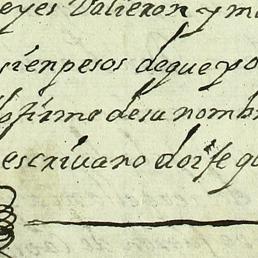 eyes Valieron y m
sienpesos de que po
lo firmo de su nombr
escrivano doi fe q